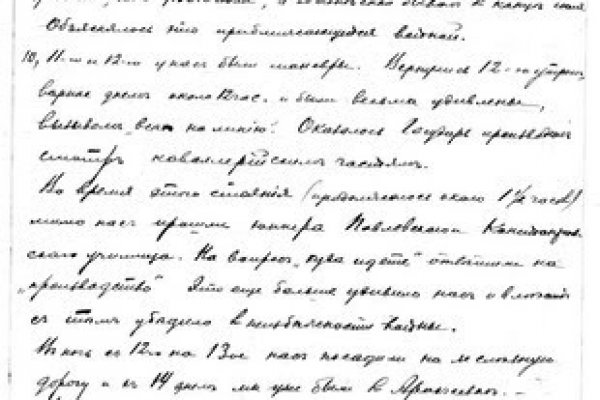 Объяснялось это приближающейся войной.
10, 11-го и 12-го у нас были маневры. Вернулись 12-го утром,
вернее днем около 12 час. и были весьма удивлены,
вызовом „всех на линию“. Оказалось Государь производит
смотр кавалерийским частям.
Во время этого стояния (продолжалось около 1½ часов)
мимо нас прошли юнкера Павловского
ского училища. На вопрос „куда идете“ ответили на
„производство“ Это еще больше удивило нас и
с тем убедило в неизбежности войны.
В ночь с 12го на 13ое нас посадили на железную
дорогу и к 14 днем мы уже были в